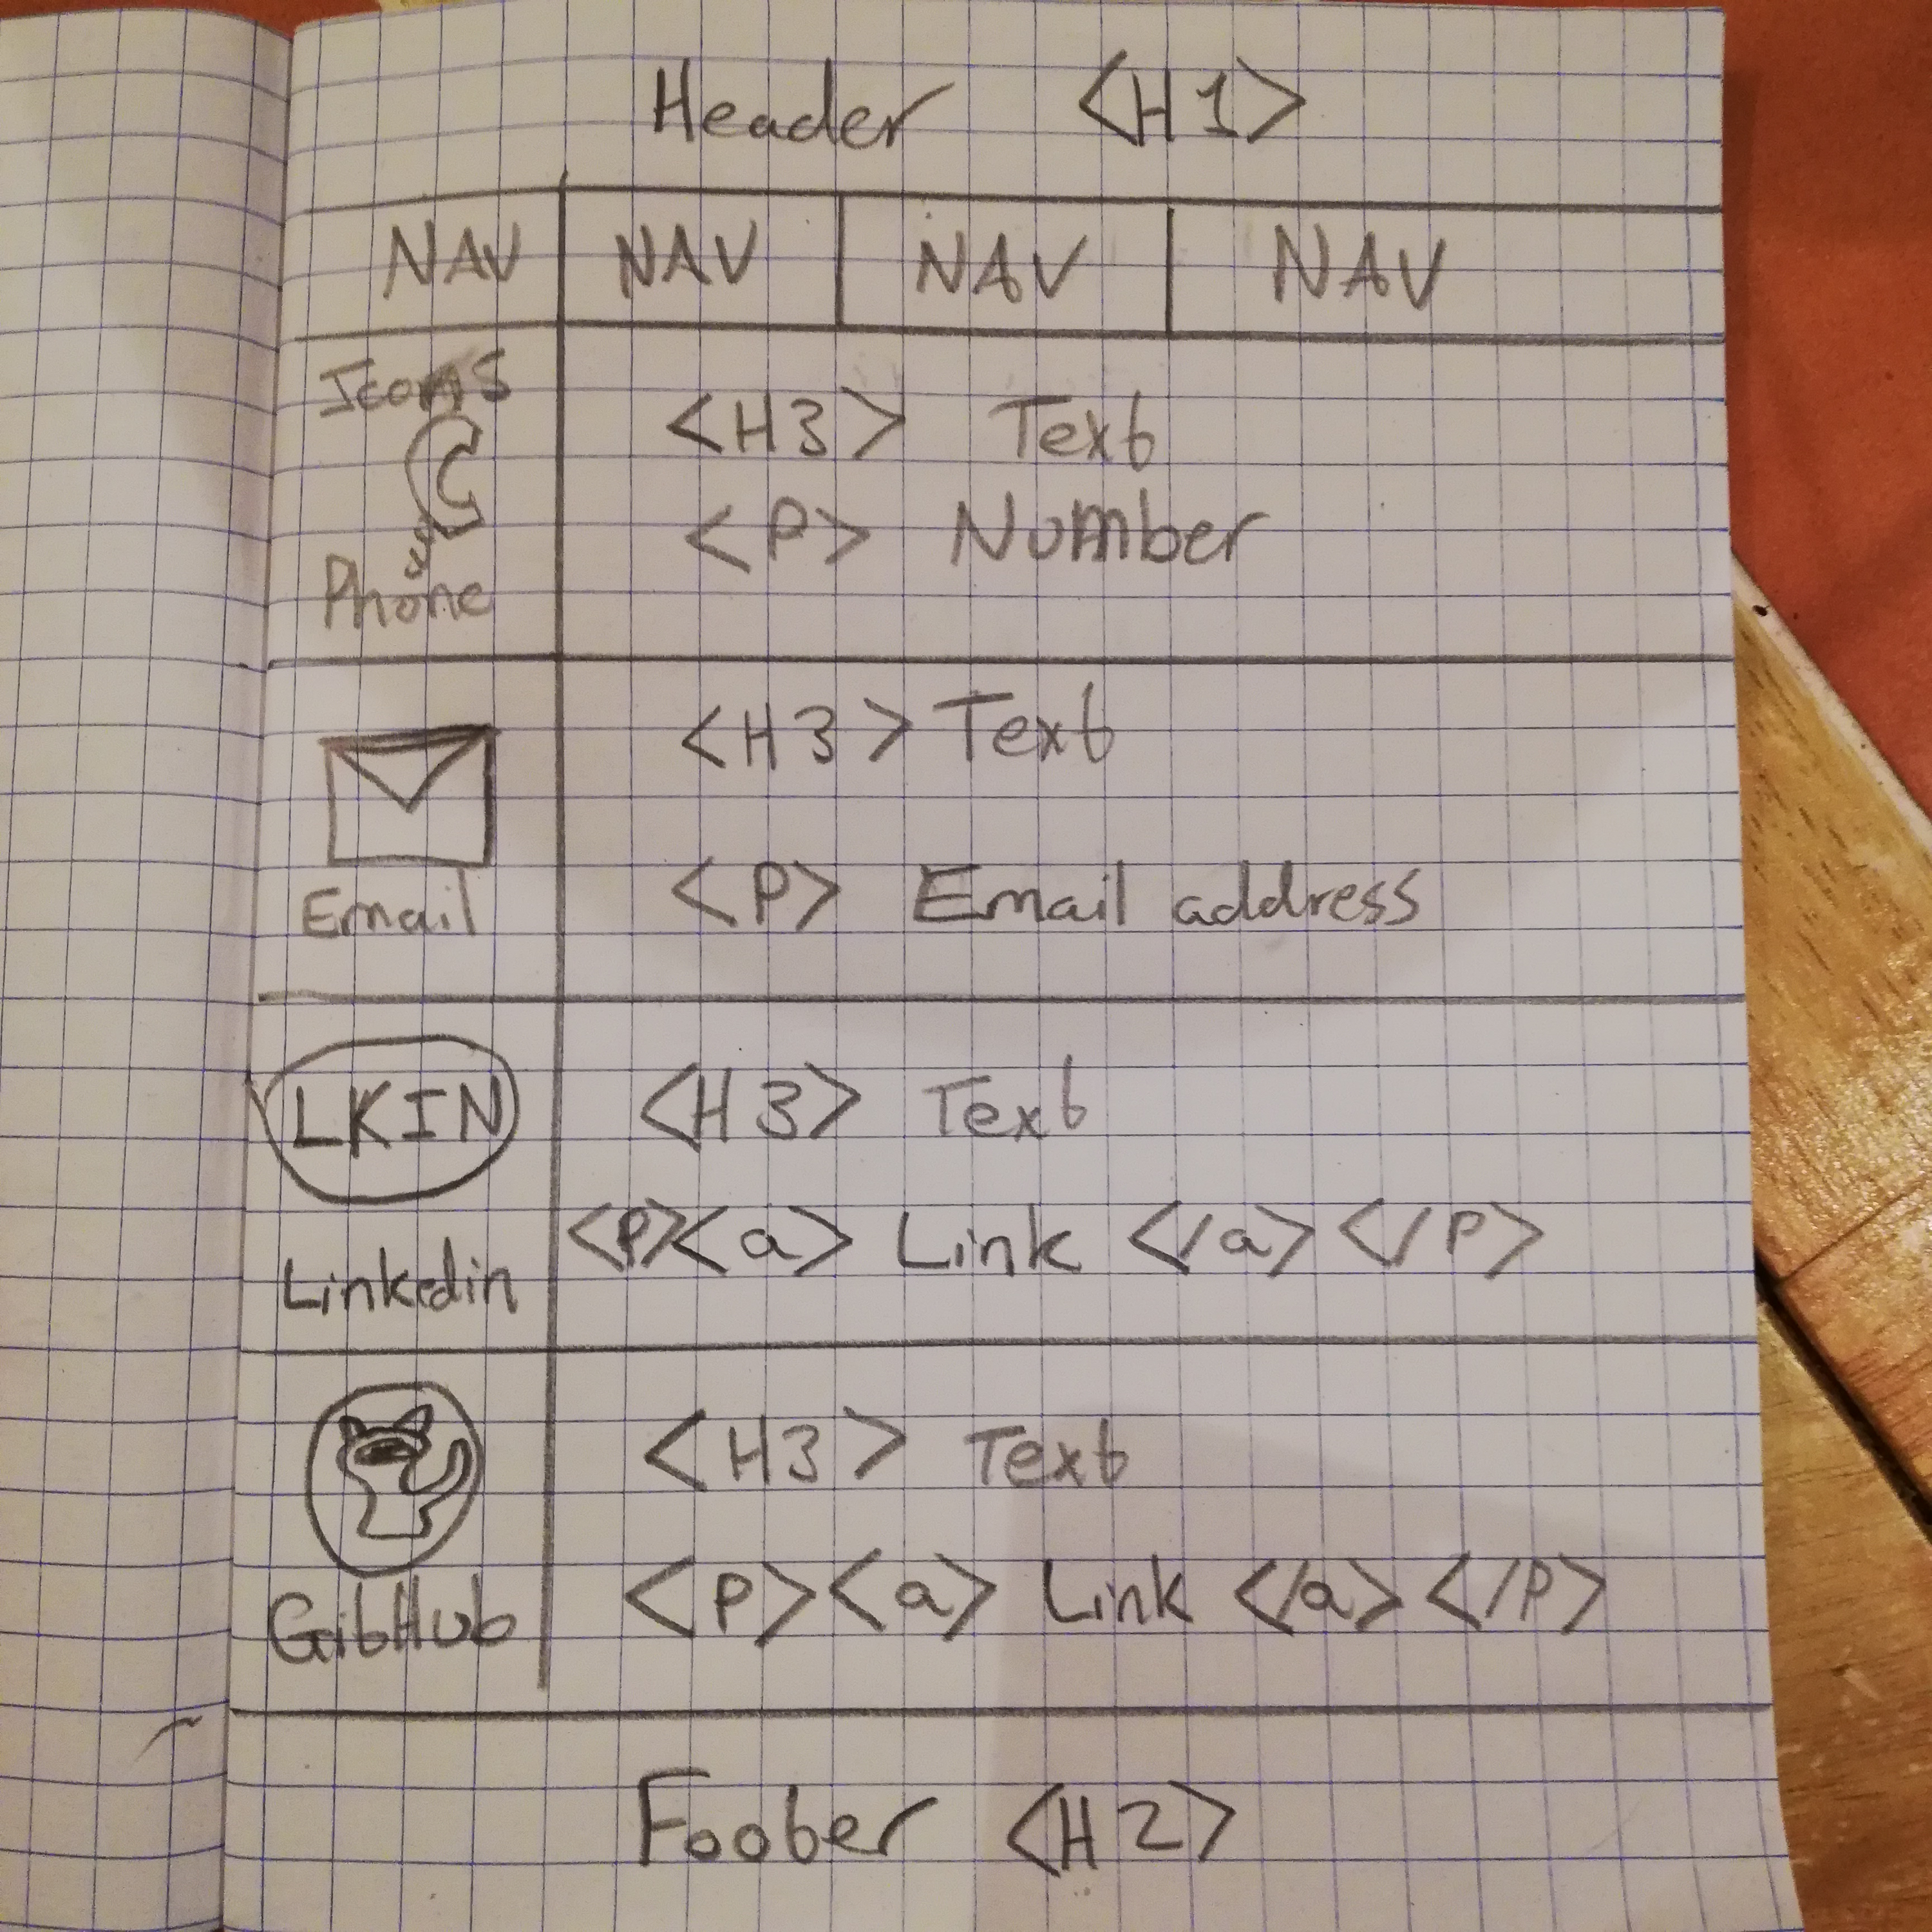 Header <H1>
NAV NAV NAV NAV
Icons
Phone
<H3> Text
<P> Number
Email
<H3> Text
<P> Email address
LKIN
Linkedin
<H3> Text
<P><a> Link </a></P>
GitHub
<H3> Text
<P><a> Link </a></P>
Footer <H2>